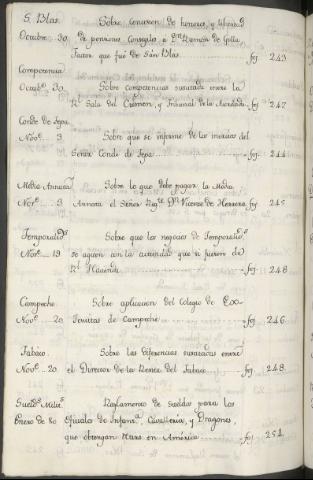 S. Blas. Sobre concesion de honores, y libertad
Octubre 30. de pensiones Consegles a Dn. Ramon de Goya,
Factor que fué de San Blas. foj. 243
Competencia
Octubre 30. Sobre competencia suscitada entre la
Rl. Sala del Crimen, y Tribunal de la Acordada. foj. 247
Conde de Tepa
Nove. 3. Sobre que se informe de los meritos del
Señor Conde de Tepa foj. 244
Media Annata Sobre lo que debe pagar la Media
Nove. 3 Annata el Señor Regte. Dn. Vicente de Herrera foj. 245
Temporalids. Sobre que los negocios de Temporalids.
Nove. 19 se sigan con la actividad que si fuesen de
Rl. Hacienda foj. 248
Campeche Sobre aplicacion del Colegio de Ex-
Nove. 20 Jesuitas de Campeche foj. 246
Tabaco. Sobre las diferencias suscitadas entre
Nove. 20 el Director de la Renta del Tabaco foj. 248
Sueldos. Milits. Reglamento de sueldos para los
Enero de 80 Oficiales de Infanta. Cavalleria, y Dragones,
que obtengan Mano en America foj. 251